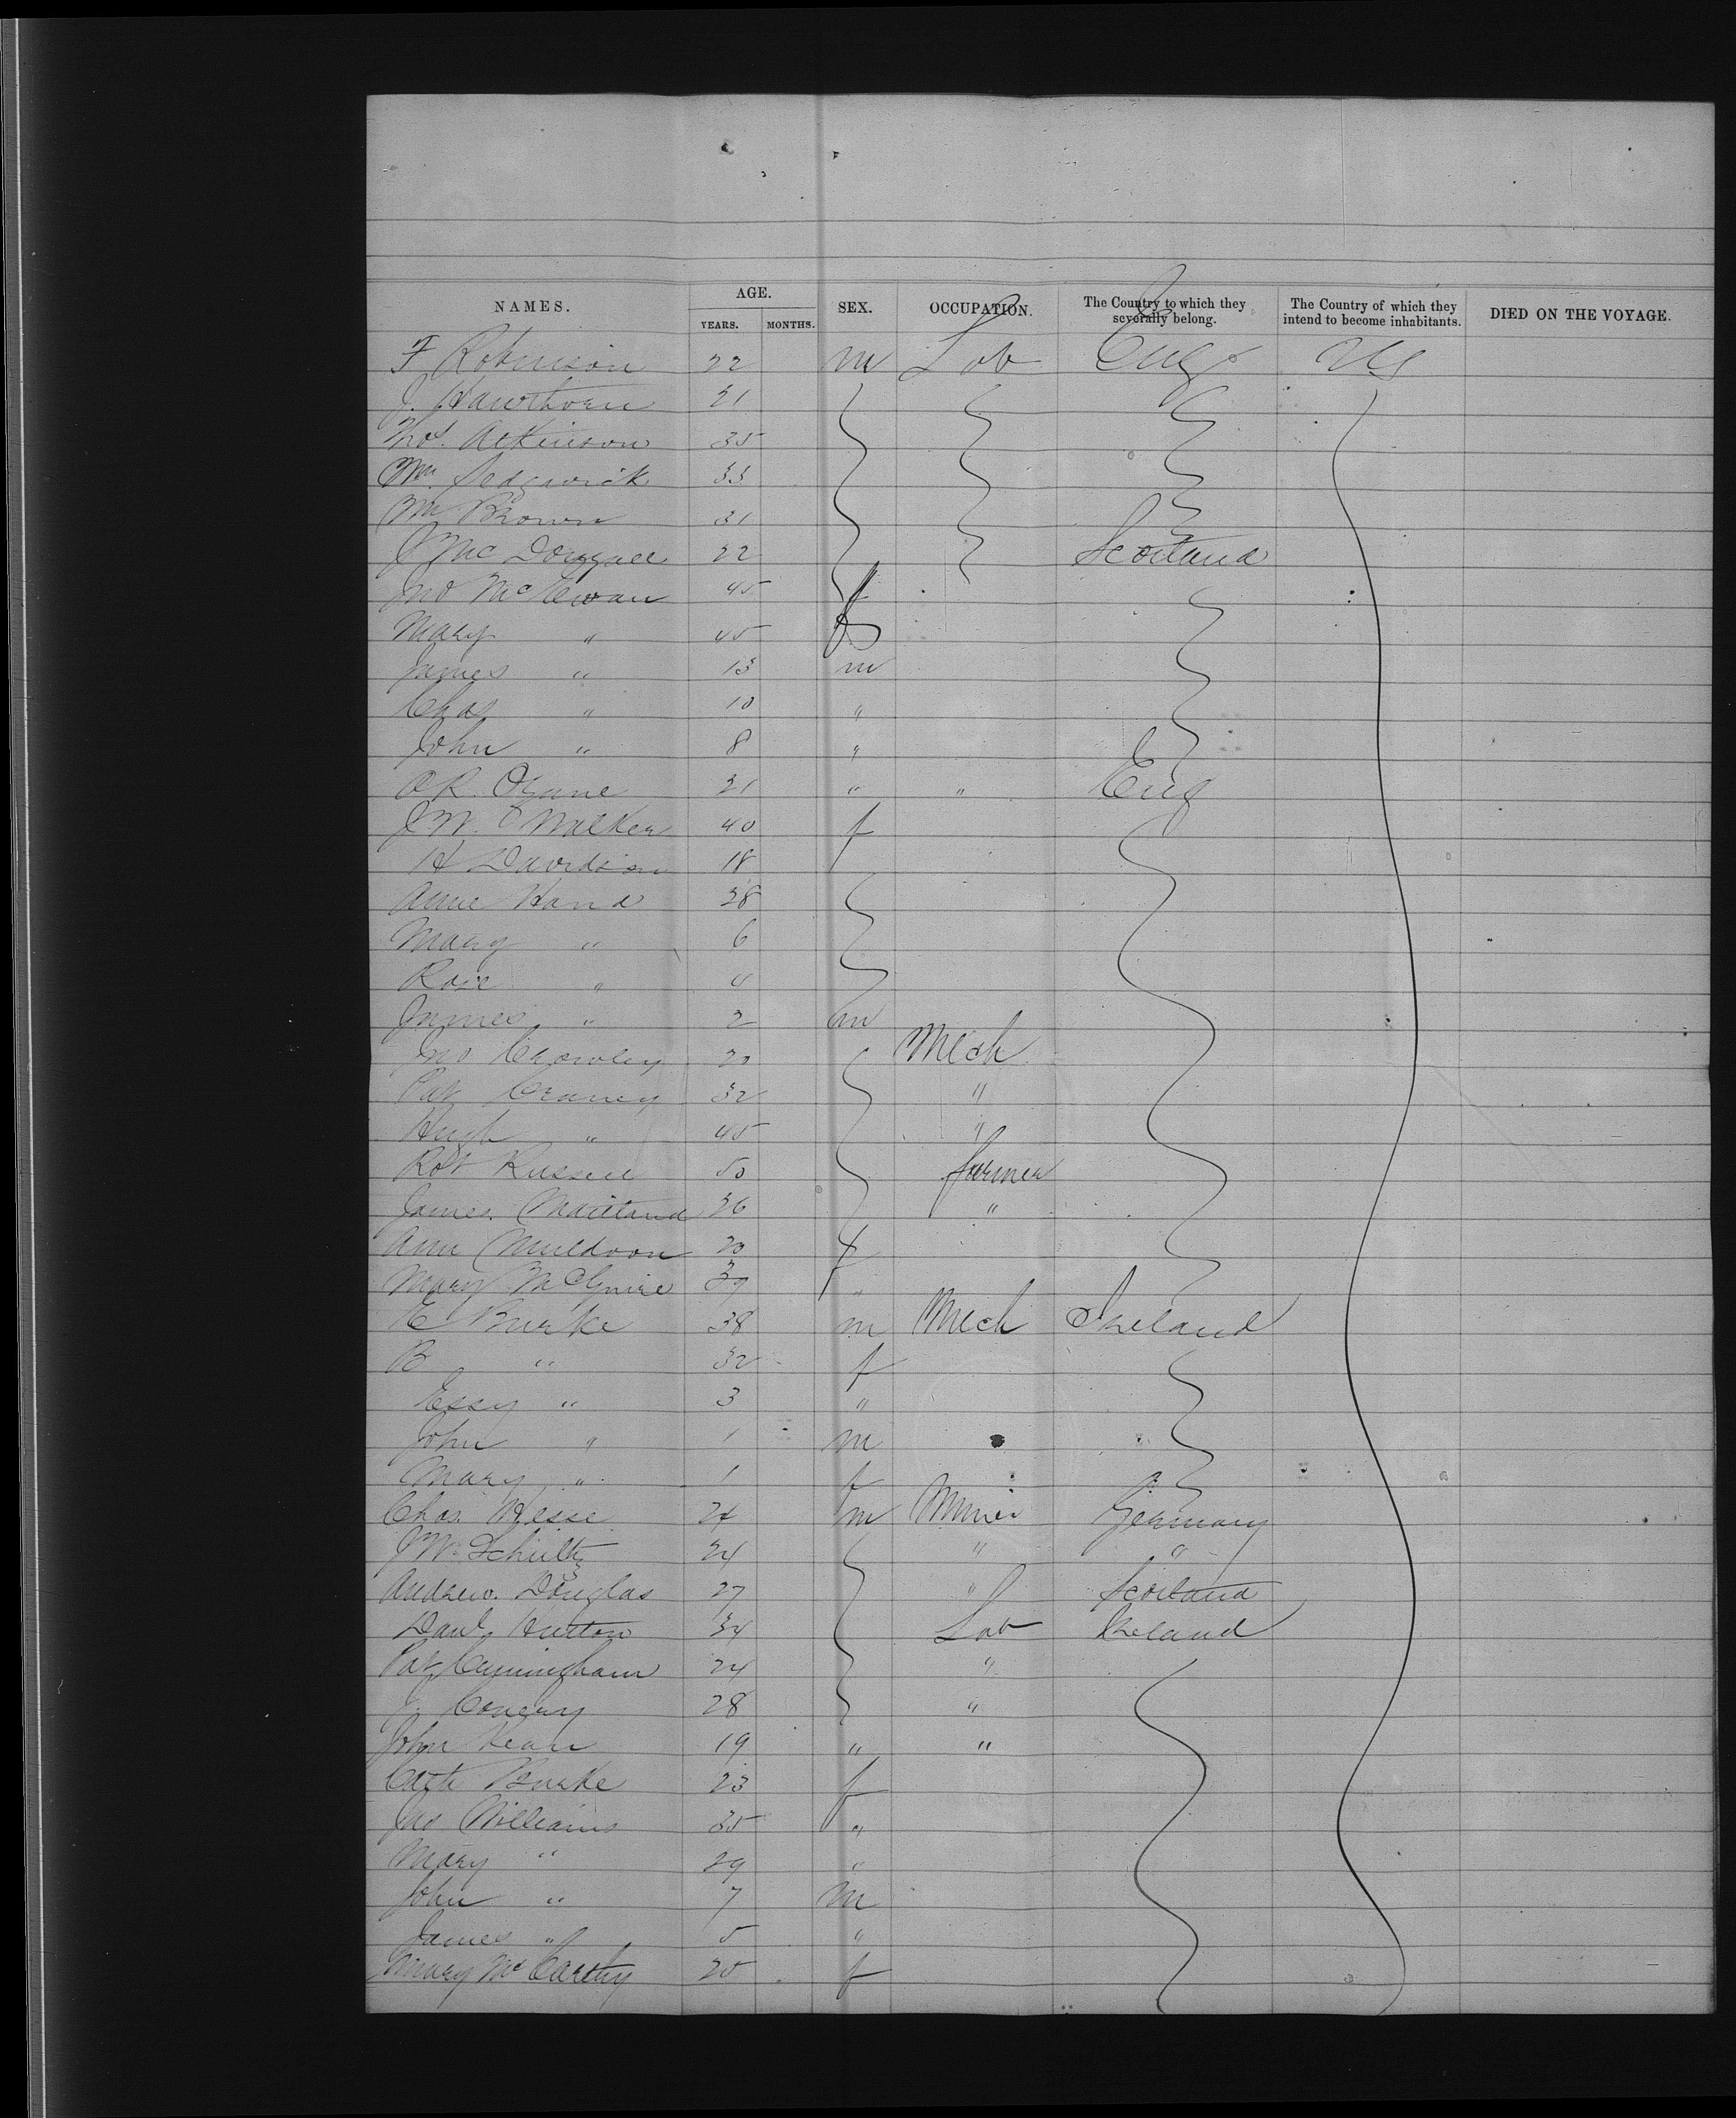 NAMES. AGE. SEX. OCCUPATION. The Country to which they severally belong. The Country of which they intend to become inhabitants. DIED ON THE VOYAGE.
YEARS. MONTHS.
F Robinson 22 m Lab Eng US
J. Hawthorn 21
Thos. Atkinson 35
Wm. Sedgwick 33
Wm Brown 31
J McDougall 22 Scotland
Jno McEwan 45
Mary " 45 f
James " 13 m
Chas " 10 "
John " 8 "
21 " " Eng
J W. Walker 40 f
H Davidson 18
Anne Hand 28
Mary " 6
Rose " 4
James " 2 m
Jno Crowley 20 Mech
Pat Craney 32 "
Hugh " 45 "
Robt Russell 50 farmer
James Maitland 36 "
Ann Muldoon 20 f
Mary McGuire "
E Burke 38 m Mech Ireland
B " 32 f
Essy " 3 "
John " 1 m
Mary " 1 f
Chas. Hesse 24 m Miner Germany
J W. Schultz 24 " "
Andrew Douglas 27 " Scotland
Danl Hutton 34 Lab Ireland
Pat Cunningham 24 "
J. Conery 28 "
John Kean 19 " "
Cath Burke 23 f
Jno Williams 35 "
Mary " 29 "
John " 7 m
James " 5 "
Mary McCarthy 20 f